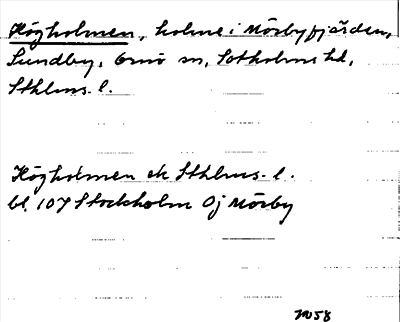 Högholmen, holme i Mörbyfjärden,
Sundby, Ornö sn, Sotholms hd,
Sthlms l.
Högholmen ek Sthlms l.
bl. 107 Stockholm Oj Mörby
1958